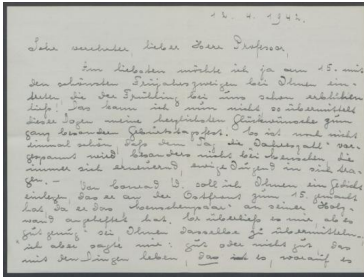 12. 4. 1942.
Sehr verehrter, lieber Herr Professor,
Am liebsten möchte ich ja am 15. mit
den schönsten Frühjahrszweigen bei Ihnen ein-
treten die der Frühling bei uns schon erblühen
liess! Das kann ich nun nicht so übermittelt
dieser Bogen meine herzlichsten Glückwünsche zum
ganz besonderen Geburtstagsfest. Es ist noch nicht
einmal schön dass dem Tag die Jahreszahl vor-
gespannt wird, besonders nicht bei Menschen, die
immer sich erneuernd ewige Jugend in sich tra-
gen. –
Von Conrad W. soll ich Ihnen ein Gedicht
einlegen das er an der Ostfront zum 15. gemacht
hat da er das an seiner Holz-
wand angeheftet hat. Er überliess es mir ob es
gut genug sei Ihnen dasselbe zu übermitteln –
ich aber sagte mir: gut oder nicht gut, das
mit den Dingen leben, das ist es, worauf es